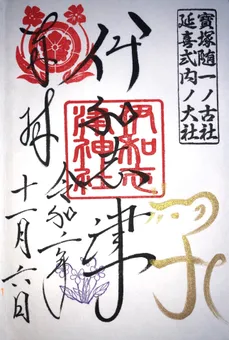 寶塚随一ノ古社
延喜式内ノ大社
子
伊和志津
伊和志津神社
奉拝
令和二年
十一月六日